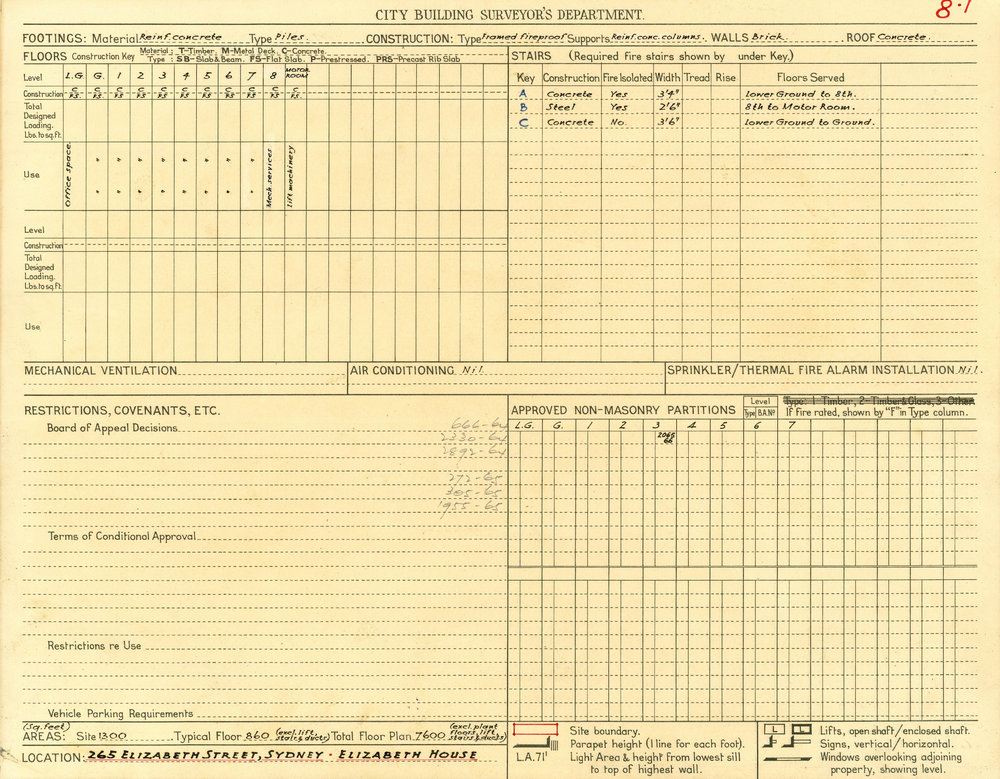 CITY BUILDING SURVEYOR'S DEPARTMENT.
8·1
FOOTINGS: Material Reinf. concrete Type Piles. CONSTRUCTION: Type Framed fireproof Supports Reinf. conc. columns. WALLS Brick. ROOF Concrete.
FLOORS Construction Key Material: T-Timber. M-Metal Deck. C-Concrete.
Type: SB-Slab & Beam. FS-Flat Slab. P-Prestressed. PRS-Precast Rib Slab
Level L.G. G. 1 2 3 4 5 6 7 8 MOTOR ROOM
Construction C C C C C C C C C C C
F.S. F.S. F.S. F.S. F.S. F.S. F.S. F.S. F.S. F.S. F.S.
Total
Designed
Loading.
Lbs. to sq. ft.
Use Office space. " " " " " " " " Mech. services Lift machinery
" " " " " " " "
Level
Construction
Total
Designed
Loading.
Lbs. to sq. ft.
Use
STAIRS (Required fire stairs shown by under Key.)
Key Construction Fire Isolated Width Tread Rise Floors Served
A Concrete Yes 3'4" Lower Ground to 8th.
B Steel Yes 2'6" 8th to Motor Room.
C Concrete No. 3'6" Lower Ground to Ground.
MECHANICAL VENTILATION
AIR CONDITIONING Nil.
SPRINKLER/THERMAL FIRE ALARM INSTALLATION Nil.
RESTRICTIONS, COVENANTS, ETC.
Board of Appeal Decisions.
666-64
2330-64
2892-64
272-65
305-65
1955-65
Terms of Conditional Approval
Restrictions re Use
Vehicle Parking Requirements
APPROVED NON-MASONRY PARTITIONS Level
Type B.A.Nº
Type: 1-Timber, 2-Timber & Glass, 3-Other.
If Fire rated, shown by "F" in Type column.
L.G. G. 1 2 3 4 5 6 7
2065
66
(Sq. feet)
AREAS: Site 1300 Typical Floor 860 (excl. lift, stairs & ducts) Total Floor Plan. 7600 (excl. plant floors, lift, stairs & ducts)
LOCATION: 265 ELIZABETH STREET, SYDNEY - ELIZABETH HOUSE
Site boundary.
Parapet height (1 line for each foot).
L.A. 71' Light Area & height from lowest sill
to top of highest wall.
L Lifts, open shaft/enclosed shaft.
Signs, vertical/horizontal.
Windows overlooking adjoining
property, showing level.